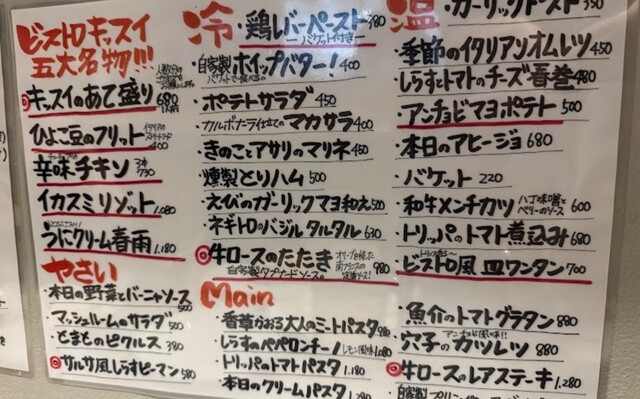 ビストロキッスイ
五大名物!!!
キッスイのあて盛り 680
ひよこ豆のフリット 400
辛味チキン 3本 790
イカスミリゾット 1,080
うにクリーム春雨 1,180
やさい
本日の野菜とバーニャソース 500
マッシュルームのサラダ 500
とまとのピクルス 380
サルサ風しらすピーマン 580
冷
・鶏レバーペースト 380
バゲット付き
自家製ホイップバター! 400
バゲットで食べる
・ポテトサラダ 450
・カルボナーラ仕立てのマカサラ 400
・きのことアサリのマリネ 450
・燻製とりハム 500
・えびのガーリックマヨ和え 500
・ネギトロのバジルタルタル 630
・牛ロースのたたき 980
自家製タプナードソース。
Main
・香草かおる大人のミートパスタ 980
・しらすのペペロンチーノ レモン風味 1,080
・トリッパのトマトパスタ 1,180
・本日のクリームパスタ 1,280
温
・ガーリックトースト 350
・季節のイタリアンオムレツ 450
・しらすとトマトのチーズ春巻 480
・アンチョビマヨポテト 500
・本日のアヒージョ 680
・バケット 220
・和牛メンチカツ 八丁味噌とベリーのソース 600
・トリッパのトマト煮込み 680
・ビストロ風皿ワンタン 700
・魚介のトマトグラタン 880
アンチョビ風味!!
・穴子のカツレツ 880
・牛ロースのレアステーキ 1,280